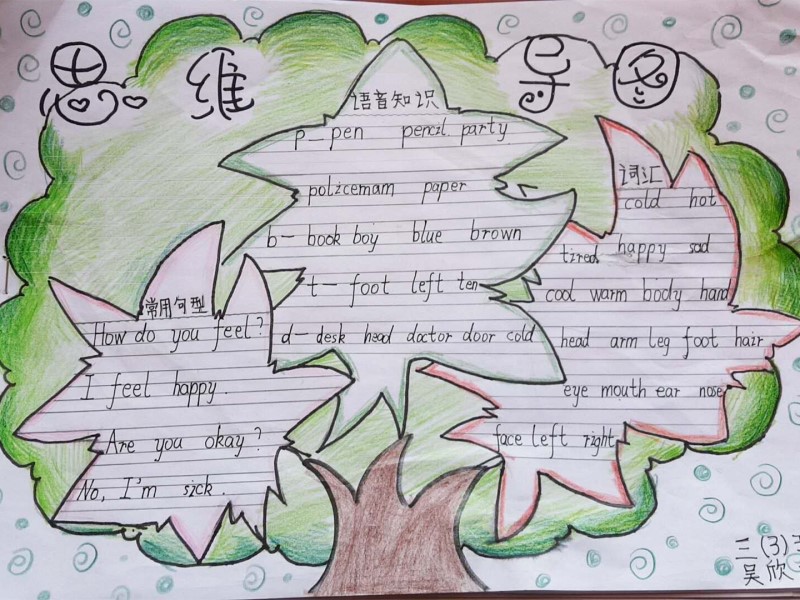 思维导图
语音知识
p— pen pencil party
policemam paper
b— book boy blue brown
t— foot left ten
d— desk head doctor door cold
常用句型
How do you feel?
I feel happy.
Are you okay?
No, I'm sick.
词汇
cold hot
tired happy sad
cool warm body hand
head arm leg foot hair
eye mouth ear nose
face left right
三(3)
吴欣